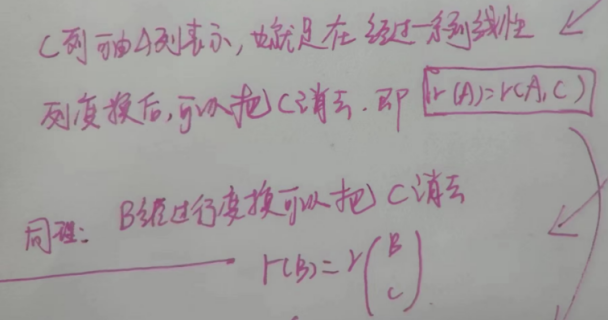 C列可由A列表示,也就是在经过一系列线性
列变换后,可以把C消去.即 r(A)=r(A,C)
同理: B经过行变换可以把C消去
r(B)=r(B
C)